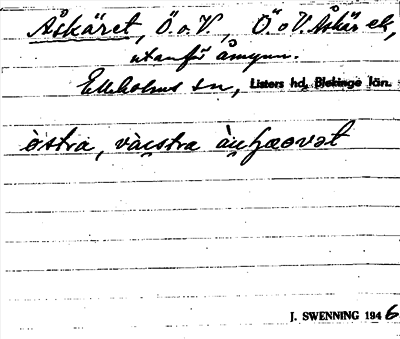 Åskäret, Ö. o. V., Ö. o V. Åskär ek,
utanför åmynn.
Elleholms sn, Listers hd, Blekinge län.
östra, västra
J. SWENNING 1946